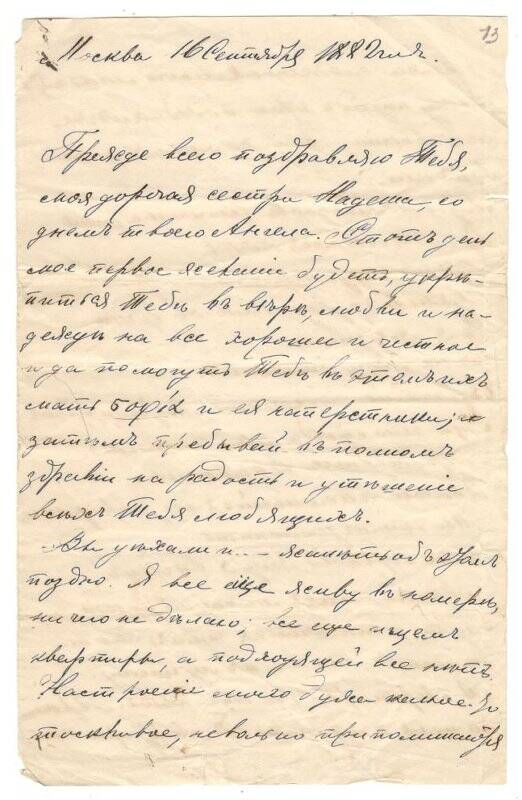 13
Москва 16 Сентября 1882 г.
Прежде всего поздравляю Тебя,
моя дорогая сестра Надежа, со
днемъ твоего Ангела. Въ этотъ день
мое первое желаніе будетъ, укрѣ-
питься Тебѣ въ вѣрѣ, любви и на-
деждѣ на все хорошее и честное
и да помогутъ Тебѣ въ этомъ ихъ
мать Софія и ея наперстники; а
затѣмъ пребывай въ полномъ
здравіи на радость и утѣшеніе
всѣхъ Тебя любящихъ.
Вы уѣхали и жалѣть объ этомъ
поздно. Я все еще живу въ номерѣ,
ничего не дѣлаю; все еще ищемъ
квартиры, а подходящей все нѣтъ.
Настроеніе моего духа какое-то
тоскливое, невольно припоминается